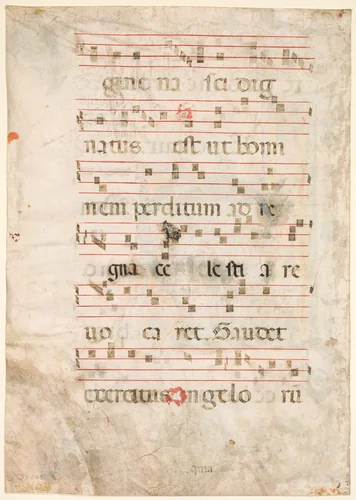 gine na sci dig
natus est ut homi
nem perditum ad re
gna ce le sti a re
uo ca ret Gaudet
exercitus angelo rū
quia